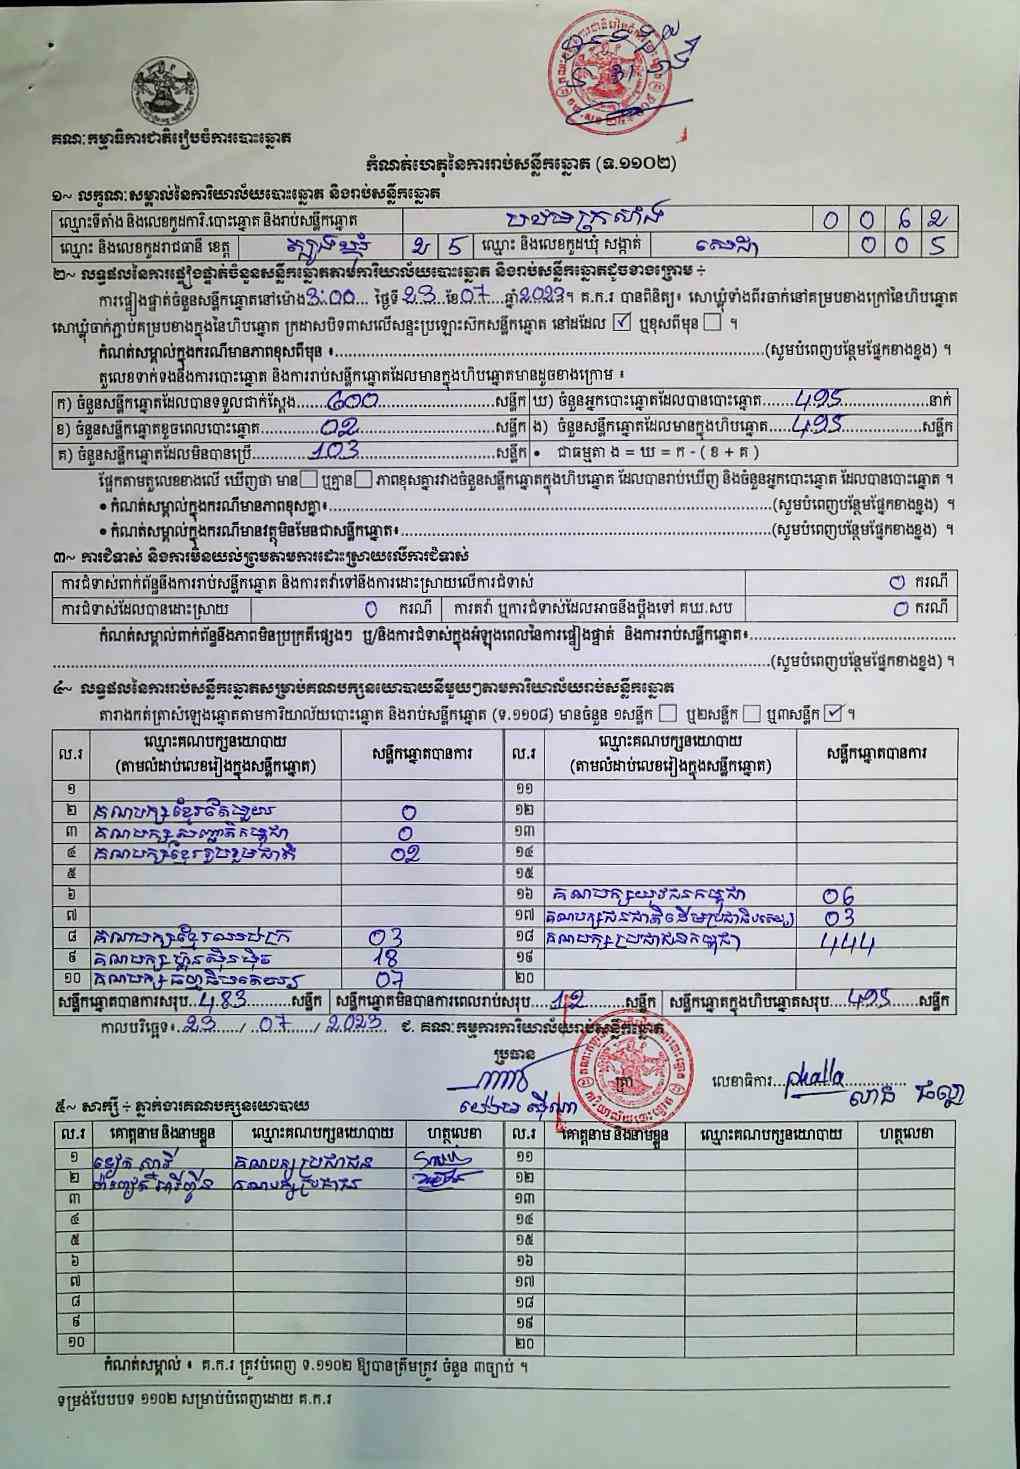 គណៈកម្មាធិការជាតិរៀបចំការបោះឆ្នោត
កំណត់ហេតុនៃការរាប់សន្លឹកឆ្នោត (ទ.១១០២)
១~ លក្ខណៈសម្គាល់នៃការិយាល័យបោះឆ្នោត និងរាប់សន្លឹកឆ្នោត
ឈ្មោះទីតាំង និងលេខកូដការិ.បោះឆ្នោត និងរាប់សន្លឹកឆ្នោត 0 0 6 2
ឈ្មោះ និងលេខកូដរាជធានី ខេត្ត ត្បូងឃ្មុំ 2 5 ឈ្មោះ និងលេខកូដឃុំ សង្កាត់ សេដា 0 0 5
២~ លទ្ធផលនៃការផ្ទៀងផ្ទាត់ចំនួនសន្លឹកឆ្នោតតាមការិយាល័យបោះឆ្នោត និងរាប់សន្លឹកឆ្នោតដូចខាងក្រោម ÷
ការផ្ទៀងផ្ទាត់ចំនួនសន្លឹកឆ្នោតនៅម៉ោង 3:00 ថ្ងៃទី 23 ខែ 07 ឆ្នាំ 2023។ គ.ក.រ បានពិនិត្យ៖ សោឃ្លុំទាំងពីរចាក់នៅគម្របខាងក្រៅនៃហិបឆ្នោត
សោឃ្លុំចាក់ភ្ជាប់គម្របខាងក្នុងនៃហិបឆ្នោត ក្រដាសបិទពាសលើសន្ទះប្រឡោះស៊កសន្លឹកឆ្នោត នៅដដែល ☑ ឬខុសពីមុន ☐ ។
កំណត់សម្គាល់ក្នុងករណីមានភាពខុសពីមុន ៖ (សូមបំពេញបន្ថែមផ្នែកខាងខ្នង) ។
តួលេខទាក់ទងនឹងការបោះឆ្នោត និងការរាប់សន្លឹកឆ្នោតដែលមានក្នុងហិបឆ្នោតមានដូចខាងក្រោម ៖
ក) ចំនួនសន្លឹកឆ្នោតដែលបានទទួលជាក់ស្តែង 600 សន្លឹក ឃ) ចំនួនអ្នកបោះឆ្នោតដែលបានបោះឆ្នោត 495 នាក់
ខ) ចំនួនសន្លឹកឆ្នោតខូចពេលបោះឆ្នោត 02 សន្លឹក ង) ចំនួនសន្លឹកឆ្នោតដែលមានក្នុងហិបឆ្នោត 495 សន្លឹក
គ) ចំនួនសន្លឹកឆ្នោតដែលមិនបានប្រើ 103 សន្លឹក • ជាធម្មតា ង = ឃ = ក - ( ខ + គ )
ផ្អែកតាមតួលេខខាងលើ ឃើញថា មាន ☐ ឬគ្មាន ☐ ភាពខុសគ្នារវាងចំនួនសន្លឹកឆ្នោតក្នុងហិបឆ្នោត ដែលបានរាប់ឃើញ និងចំនួនអ្នកបោះឆ្នោត ដែលបានបោះឆ្នោត ។
• កំណត់សម្គាល់ក្នុងករណីមានភាពខុសគ្នា៖ (សូមបំពេញបន្ថែមផ្នែកខាងខ្នង) ។
• កំណត់សម្គាល់ក្នុងករណីមានវត្ថុមិនមែនជាសន្លឹកឆ្នោត៖ (សូមបំពេញបន្ថែមផ្នែកខាងខ្នង) ។
៣~ ការជំទាស់ និងការមិនយល់ព្រមតាមការដោះស្រាយលើការជំទាស់
ការជំទាស់ពាក់ព័ន្ធនឹងការរាប់សន្លឹកឆ្នោត និងការតវ៉ាទៅនឹងការដោះស្រាយលើការជំទាស់ 0 ករណី
ការជំទាស់ដែលបានដោះស្រាយ 0 ករណី ការតវ៉ា ឬការជំទាស់ដែលអាចនឹងប្តឹងទៅ គឃ.សប 0 ករណី
កំណត់សម្គាល់ពាក់ព័ន្ធនឹងភាពមិនប្រក្រតីផ្សេងៗ ឬ/និងការជំទាស់ក្នុងអំឡុងពេលនៃការផ្ទៀងផ្ទាត់ និងការរាប់សន្លឹកឆ្នោត៖
(សូមបំពេញបន្ថែមផ្នែកខាងខ្នង) ។
៤~ លទ្ធផលនៃការរាប់សន្លឹកឆ្នោតសម្រាប់គណបក្សនយោបាយនីមួយៗតាមការិយាល័យរាប់សន្លឹកឆ្នោត
តារាងកត់ត្រាសំឡេងឆ្នោតតាមការិយាល័យបោះឆ្នោត និងរាប់សន្លឹកឆ្នោត (ទ.១១០៨) មានចំនួន ១សន្លឹក ☐ ឬ២សន្លឹក ☐ ឬ៣សន្លឹក ☑ ។
ល.រ ឈ្មោះគណបក្សនយោបាយ (តាមលំដាប់លេខរៀងក្នុងសន្លឹកឆ្នោត) សន្លឹកឆ្នោតបានការ ល.រ ឈ្មោះគណបក្សនយោបាយ (តាមលំដាប់លេខរៀងក្នុងសន្លឹកឆ្នោត) សន្លឹកឆ្នោតបានការ
១ ១១
២ គណបក្សខ្មែរតែមួយ 0 ១២
៣ គណបក្សសញ្ជាតិកម្ពុជា 0 ១៣
៤ គណបក្សខ្មែររួបរួមជាតិ 02 ១៤
៥ ១៥
៦ ១៦ គណបក្សយុវជនកម្ពុជា 06
៧ ១៧ គណបក្សជនជាតិដើមប្រជាធិបតេយ្យ 03
៨ គណបក្សខ្មែរឈប់ក្រ 03 ១៨ គណបក្សប្រជាជនកម្ពុជា 444
៩ គណបក្សហ៊្វុនស៊ិនប៉ិច 18 ១៩
១០ 07 ២០
សន្លឹកឆ្នោតបានការសរុប 483 សន្លឹក សន្លឹកឆ្នោតមិនបានការពេលរាប់សរុប 12 សន្លឹក សន្លឹកឆ្នោតក្នុងហិបឆ្នោតសរុប 495 សន្លឹក
កាលបរិច្ឆេទ៖ 23 / 07 / 2023 ជ. គណៈកម្មការការិយាល័យរាប់សន្លឹកឆ្នោត
ប្រធាន
ត្រា លេខាធិការ phalla
៥~ សាក្សី ÷ ភ្នាក់ងារគណបក្សនយោបាយ
ល.រ គោត្តនាម និងនាមខ្លួន ឈ្មោះគណបក្សនយោបាយ ហត្ថលេខា ល.រ គោត្តនាម និងនាមខ្លួន ឈ្មោះគណបក្សនយោបាយ ហត្ថលេខា
១ គណបក្សប្រជាជន ១១
២ គណបក្សប្រជាជន ១២
៣ ១៣
៤ ១៤
៥ ១៥
៦ ១៦
៧ ១៧
៨ ១៨
៩ ១៩
១០ ២០
កំណត់សម្គាល់ ៖ គ.ក.រ ត្រូវបំពេញ ទ.១១០២ ឱ្យបានត្រឹមត្រូវ ចំនួន ៣ច្បាប់ ។
ទម្រង់បែបបទ ១១០២ សម្រាប់បំពេញដោយ គ.ក.រ